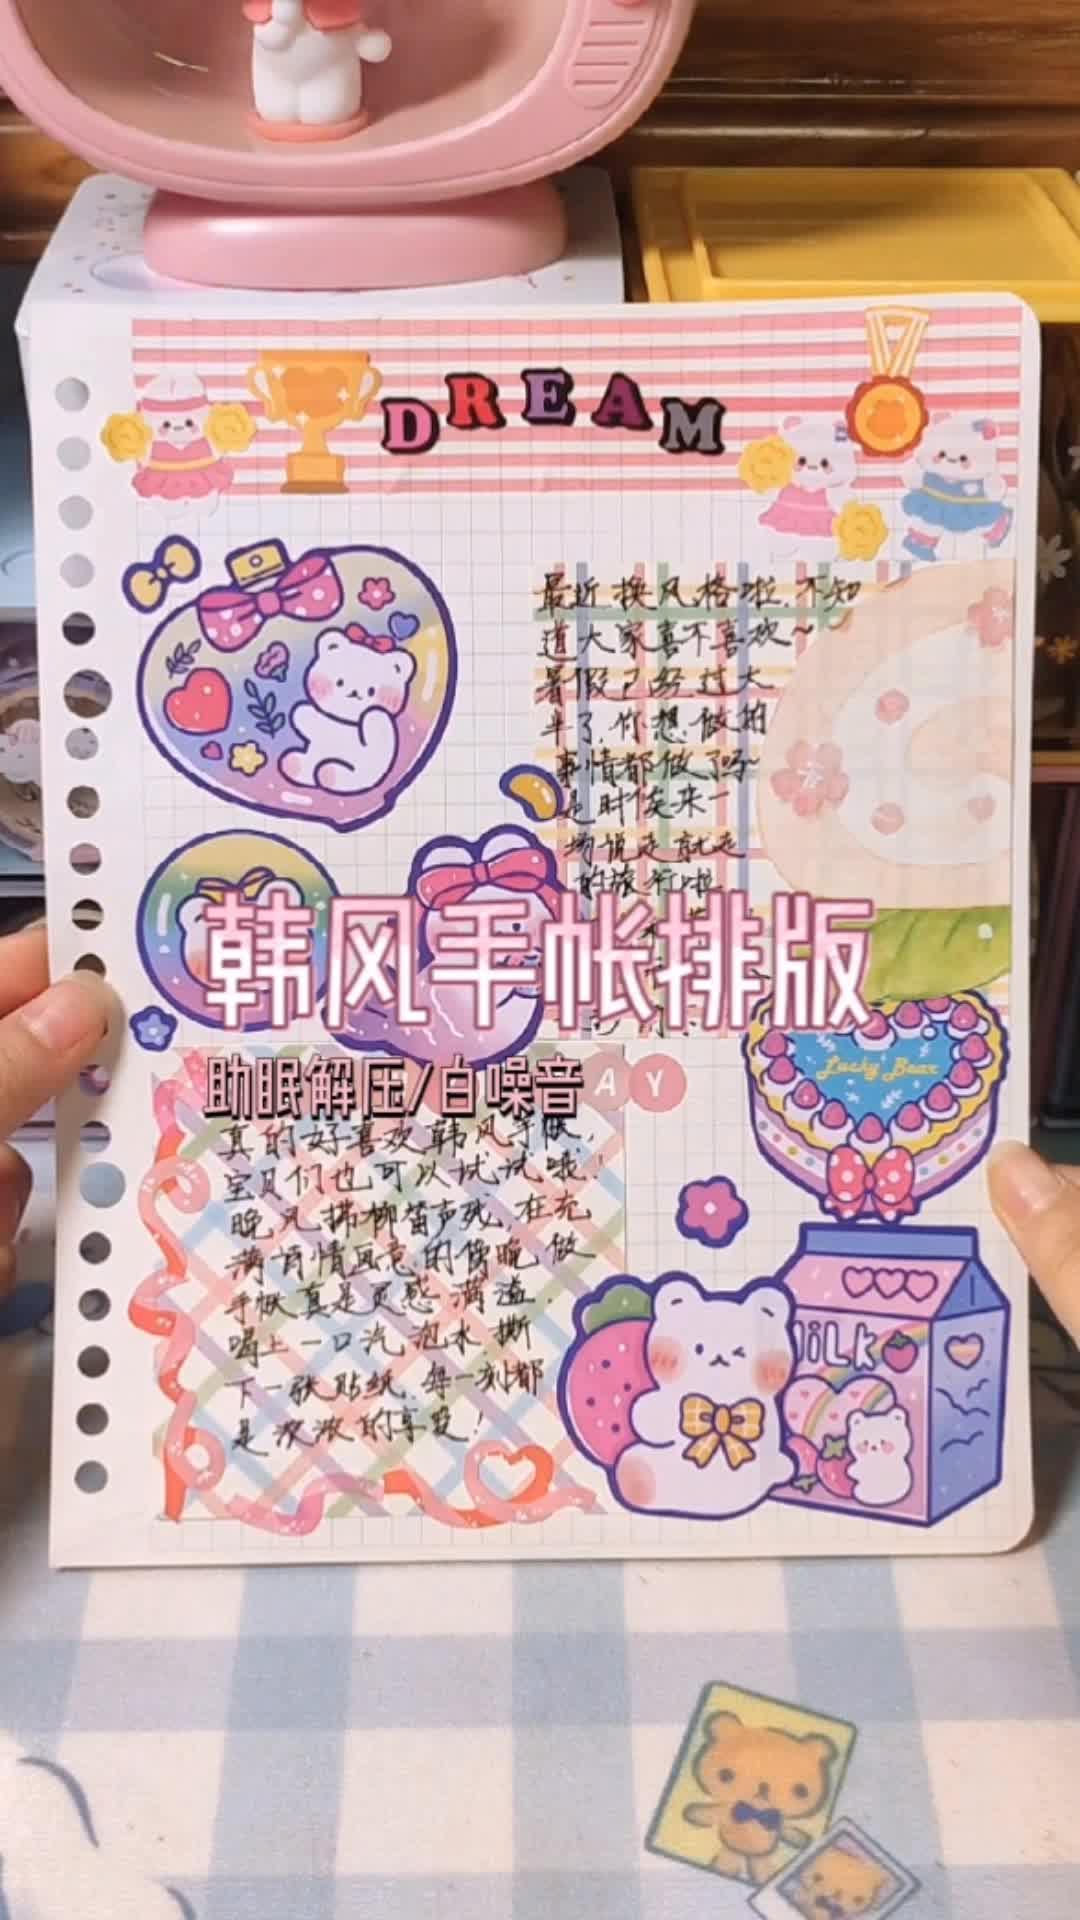 DREAM
最近换风格啦,不知
道大家喜不喜欢~
暑假已经过大
半了,你想做的
事情都做了吗~
是时候来一
场说走就走
的旅行啦
韩风手帐排版
Lucky Bear
助眠解压/白噪音
AY
真的好喜欢韩风手帐,
宝贝们也可以试试哦!
晚风拂柳笛声残,在充
满诗情画意的傍晚,做
手帐真是灵感满溢.
喝上一口汽泡水撕
下一张贴纸,每一刻都
是浓浓的享受!
Milk